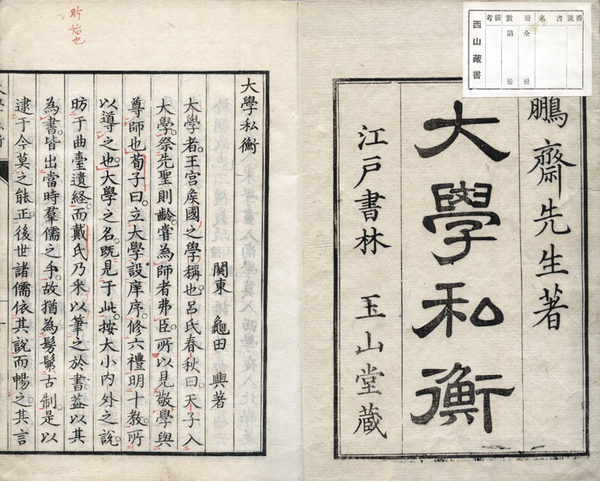 鵬齋先生著
大學私衡
江戸書林 玉山堂藏
書名
冊數
備考
全 冊
第
西山藏書
昉始也
大學私衡
關東 龜田 興著
大學者王宮矦國之學稱也。呂氏春秋曰。天子入
大學祭先聖則齒嘗為師者弗臣。所以見敬學與
尊師也。荀子曰。立大學設庠序。修六禮明十教。所
以導之也。大學之名既見于此。按大小內外之說
昉于曲臺遺經。而戴氏乃采以筆之於書。蓋以其
為書。皆出當時羣儒之手。故猶為髣髴古制。是以
逮于今莫之能正。後世諸儒依其說而暢之。其言